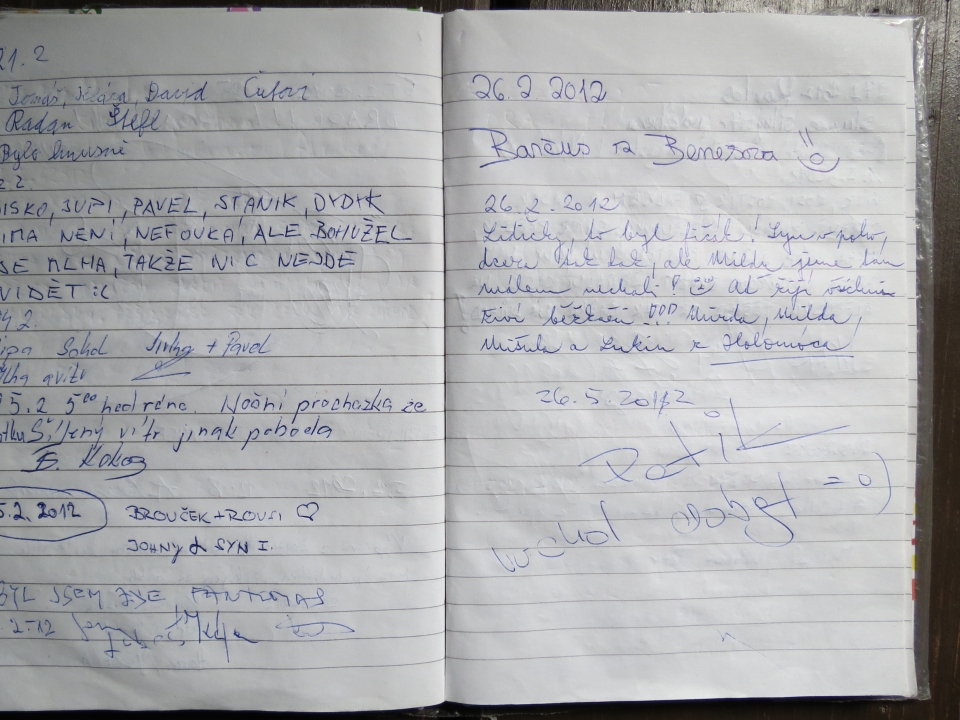 21.2
Tomáš, Klára, David
Radan
Bylo
2.2.
DISKO, JUPI, PAVEL, STANIK, DYDYK
ZIMA NENÍ, NEFOUKÁ, ALE BOHUŽEL
JE MLHA, TAKŽE NIC NEJDE
VIDĚT :(
24.2.
Sokol Jirka + Pavel
25.2 5⁰⁰ hod ráno. Noční procházka ze
Šílený vítr jinak pohoda
5.2.2012 BROUČEK + ROUSI ♡
JOHNY & SYN I.
BYL JSEM ZDE, FANTOMAS
2-12
26.2 2012
Barčus Benešova
26.2.2012
Lidičky, to byl fičák! Lysa v poho,
dcera tak tak, ale Milda jsme tam
málem nechali! Ať žijí všichni
běžkaři !!! Mirda, Milda,
Mišula a Lukin z Holomóca
26.5.2012
= o)